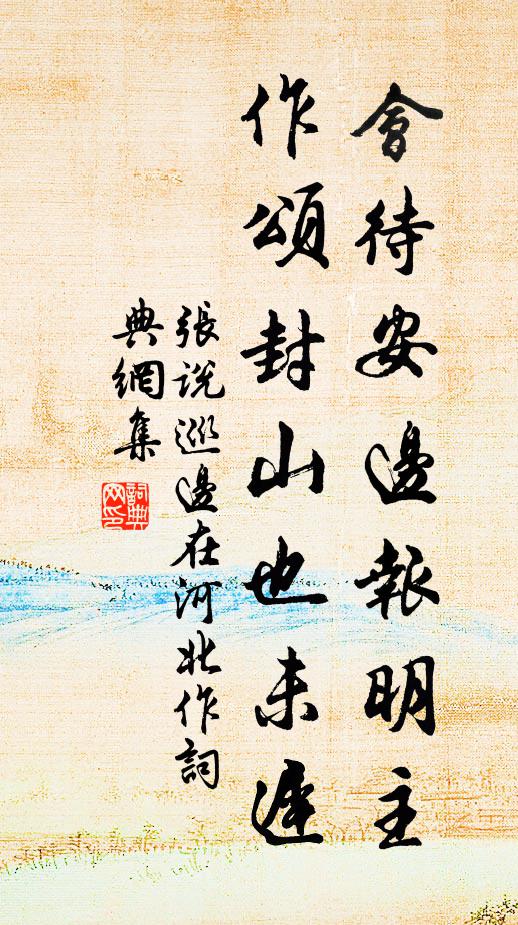 會待安邊報明主
作頌封山也未遲
張說巡邊在河北作詞
典網集
詞典
网印